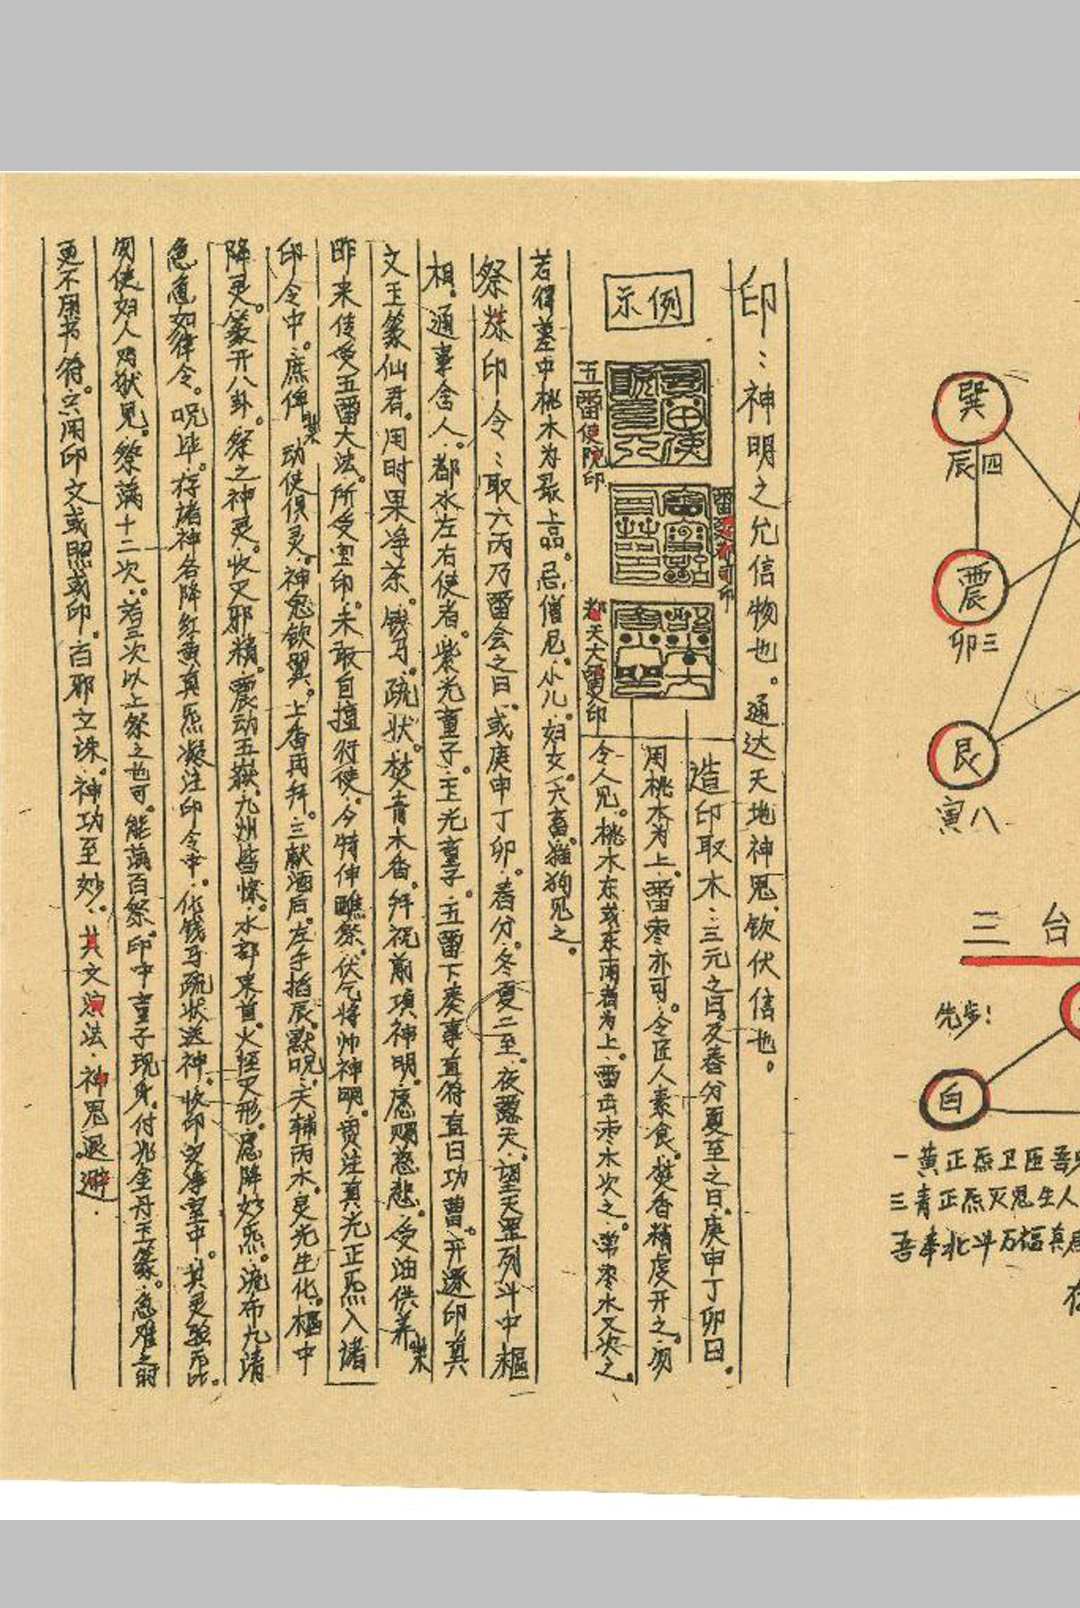 印：神明之允信物也。通达天地神鬼钦伏信也。
造印取木：三元之日及春分夏至之日。庚申丁卯日。
用桃木为上。雷枣亦可。令匠人素食。焚香精虔开之。勿
令人见。桃木东或东南者为上。雷击枣木次之。常枣木又次之。
示例
五雷使院印
都天大雷火印
若得墓中桃木为最上品。忌僧尼。小儿。妇女。六畜。猫狗见之。
祭炼印令：取六丙乃雷会之日。或庚申丁卯。春分。冬夏二至。夜露天。望天罡列斗中枢
相。通事舍人。都水左右使者。紫光童子。玉光童子。五雷下奏事直符直日功曹。开邃印真
文玉篆仙君。用时果净茶。钱马。疏状。焚青木香。拜祝前项神明。愿赐慈悲。受油供养
昨来传受五雷大法。所受宝印。未敢自擅行使。今特伸醮祭。伏乞将帅神明。贯注真光正炁入诸
印令中。庶俾 动使俱灵。神鬼钦翼。上香再拜。三献酒后。左手掐辰。默咒。天辅丙水。灵光生化。枢中
降灵。篆开八卦。祭之神灵。收灭邪精。震动五嶽。九州皆惊。水部束首。火铚灭形。愿降妙炁。流布九清
急急如律令。咒毕。存诸神各降红黄真炁凝注印令中。化钱马疏状送神。收印安净室中。其灵验无比。
勿使妇人鸡狱见。祭满十二次。若三次以上祭之也可。能满百祭。印中童子现身。付兆金丹玉篆。急难之时
更不用书符。只用印文或照或印。百邪立诛。神功至妙。其文演法。神鬼退避。
巽
辰四
震
卯三
艮
寅八
三台
先步：
白
一黄正炁卫匝吾
三青正炁灭鬼生人
吾奉北斗万福真